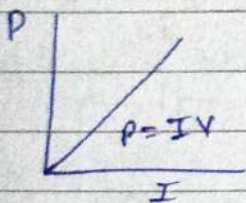 P
P = IV
I